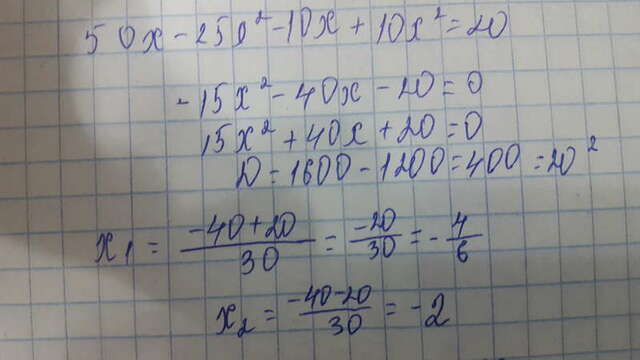 50x - 25x² - 10x + 10x² = 20
-15x² - 40x - 20 = 0
15x² + 40x + 20 = 0
D = 1600 - 1200 = 400 = 20²
x₁ = (-40+20)/30 = -20/30 = -4/6
x₂ = (-40-20)/30 = -2